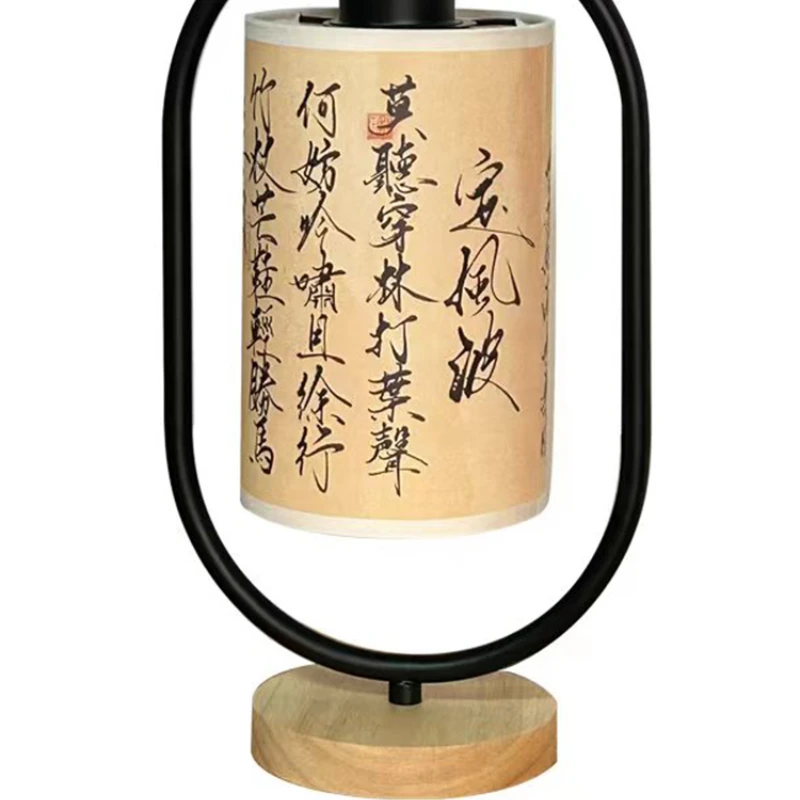 定風波
莫聽穿林打葉聲
何妨吟嘯且徐行
竹杖芒鞋輕勝馬